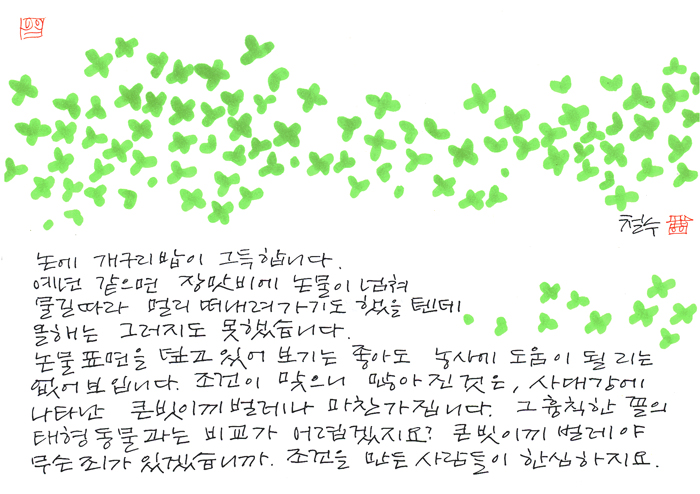 철수
논에 개구리밥이 그득합니다.
예년 같으면 장맛비에 논물이 넘쳐
물길따라 멀리 떠내려가기도 했을 텐데
올해는 그러지도 못했습니다.
논물 표면을 덮고 있어 보기는 좋아도 농사에 도움이 될 리는
없어 보입니다. 조건이 맞으니 많아진 것은, 사대강에
나타난 큰빗이끼벌레나 마찬가집니다. 그 흉칙한 꼴의
태형동물과는 비교가 어렵겠지요? 큰빗이끼 벌레야
무슨 죄가 있겠습니까. 조건을 만든 사람들이 한심하지요.